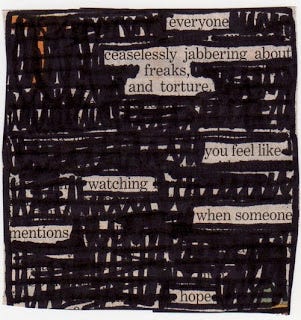 everyone
ceaselessly jabbering about
freaks,
and torture
you feel like
watching
when someone
mentions
hope